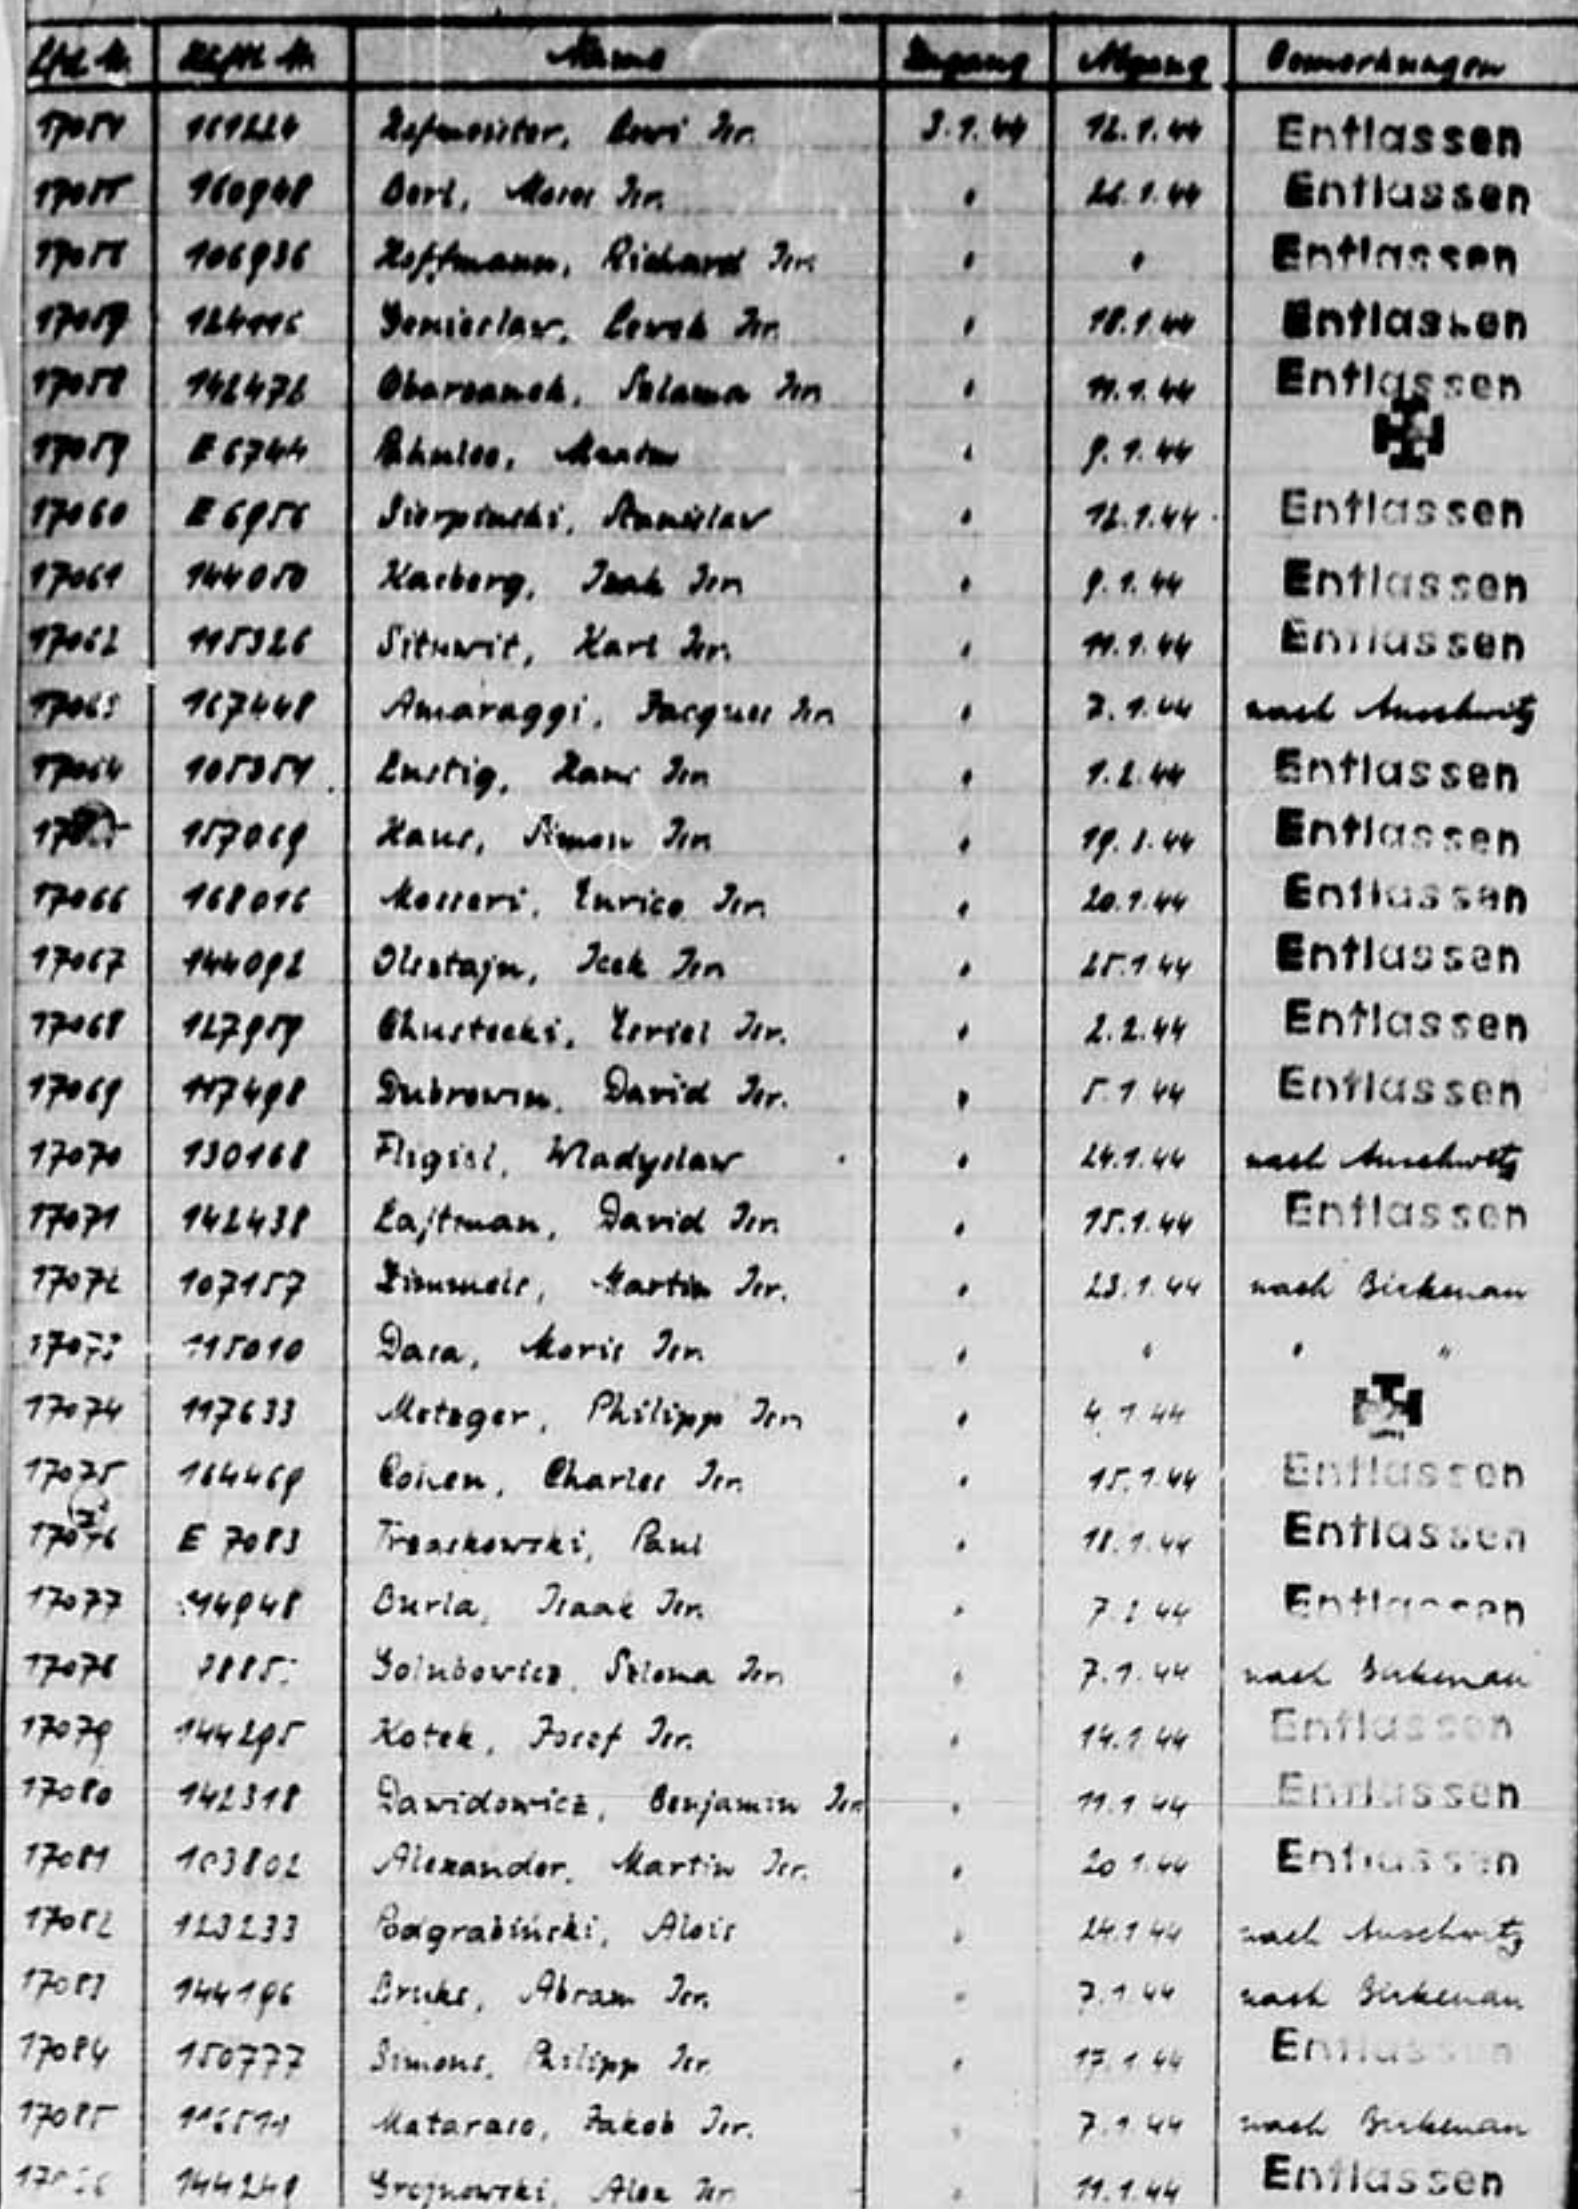 Lfd. Nr. Häftl. Nr. Name Zugang Abgang Bemerkungen
17054 161224 Isr. 3.1.44 12.1.44 Entlassen
17055 160948 Berl, Moses Isr. " 26.1.44 Entlassen
17056 106936 Hoffmann, Richard Isr. " " Entlassen
17057 Lewek Isr. " 18.1.44 Entlassen
17058 142472 Obarzanek, Salama Isr. " 11.1.44 Entlassen
17059 E 6744 " 9.1.44
17060 E 6956 Sierpinski, Stanislav " 12.1.44 Entlassen
17061 144050 Kasberg, Isak Isr. " 9.1.44 Entlassen
17062 115326 Karl Isr. " 11.1.44 Entlassen
17063 167448 Amaraggi, Jacques Isr. " 7.1.44 nach Auschwitz
17064 105354 Lustig, Hans Isr. " 1.2.44 Entlassen
157069 Haus, Simon Isr. " 19.1.44 Entlassen
17066 168016 Mosseri, Enrico Isr. " 20.1.44 Entlassen
17067 144092 Olsztajn, Icek Isr. " 25.1.44 Entlassen
17068 127959 Chustecki, Isr. " 2.2.44 Entlassen
17069 117498 Dubrowin, David Isr. " 5.1.44 Entlassen
17070 130168 Fligisl, Wladyslaw " 24.1.44 nach Auschwitz
17071 142438 Lajtman, David Isr. " 15.1.44 Entlassen
17072 107157 Zimmels, Martin Isr. " 23.1.44 nach Birkenau
17073 115010 Dasa, Moris Isr. " " " "
17074 117633 Metzger, Philipp Isr. " 4.1.44
17075 164469 Cohen, Charles Isr. " 15.1.44 Entlassen
17076 E 7083 Trzaskowski, Paul " 18.1.44 Entlassen
17077 114948 Burla, Isaak Isr. " 7.2.44 Entlassen
17078 Golubowicz, Szloma Isr. " 7.1.44 nach Birkenau
17079 144295 Kotek, Josef Isr. " 14.1.44 Entlassen
17080 142318 Dawidowicz, Benjamin Isr. " 11.1.44 Entlassen
17081 103802 Alexander, Martin Isr. " 20.1.44 Entlassen
17082 123233 Podgrabinski, Alois " 24.1.44 nach Auschwitz
17083 144196 Bruks, Abram Isr. " 7.1.44 nach Birkenau
17084 150777 Simons, Philipp Isr. " 17.1.44 Entlassen
17085 116511 Mataraso, Jakob Isr. " 7.1.44 nach Birkenau
144249 Grojnowski, Alex Isr. " 11.1.44 Entlassen